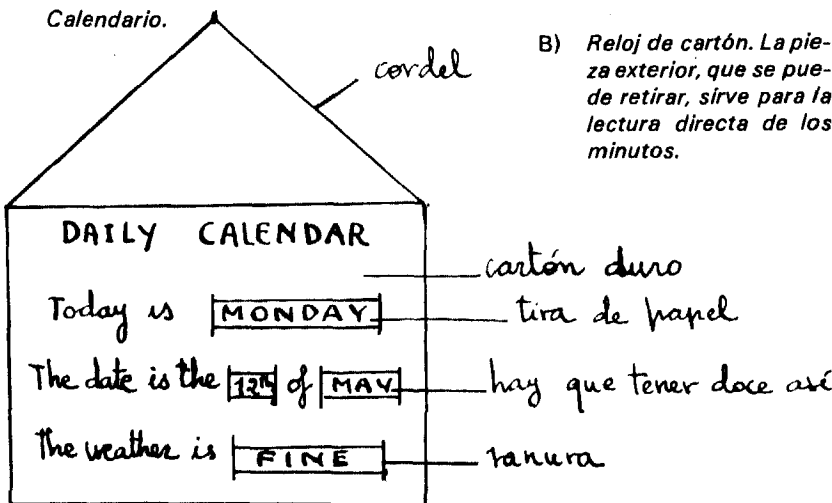 Calendario.
cordel
B) Reloj de cartón. La pie-
za exterior, que se pue-
de retirar, sirve para la
lectura directa de los
minutos.
DAILY CALENDAR
cartón duro
Today is MONDAY
tira de papel
The date is the 12th of MAY
hay que tener doce así
The weather is FINE
ranura